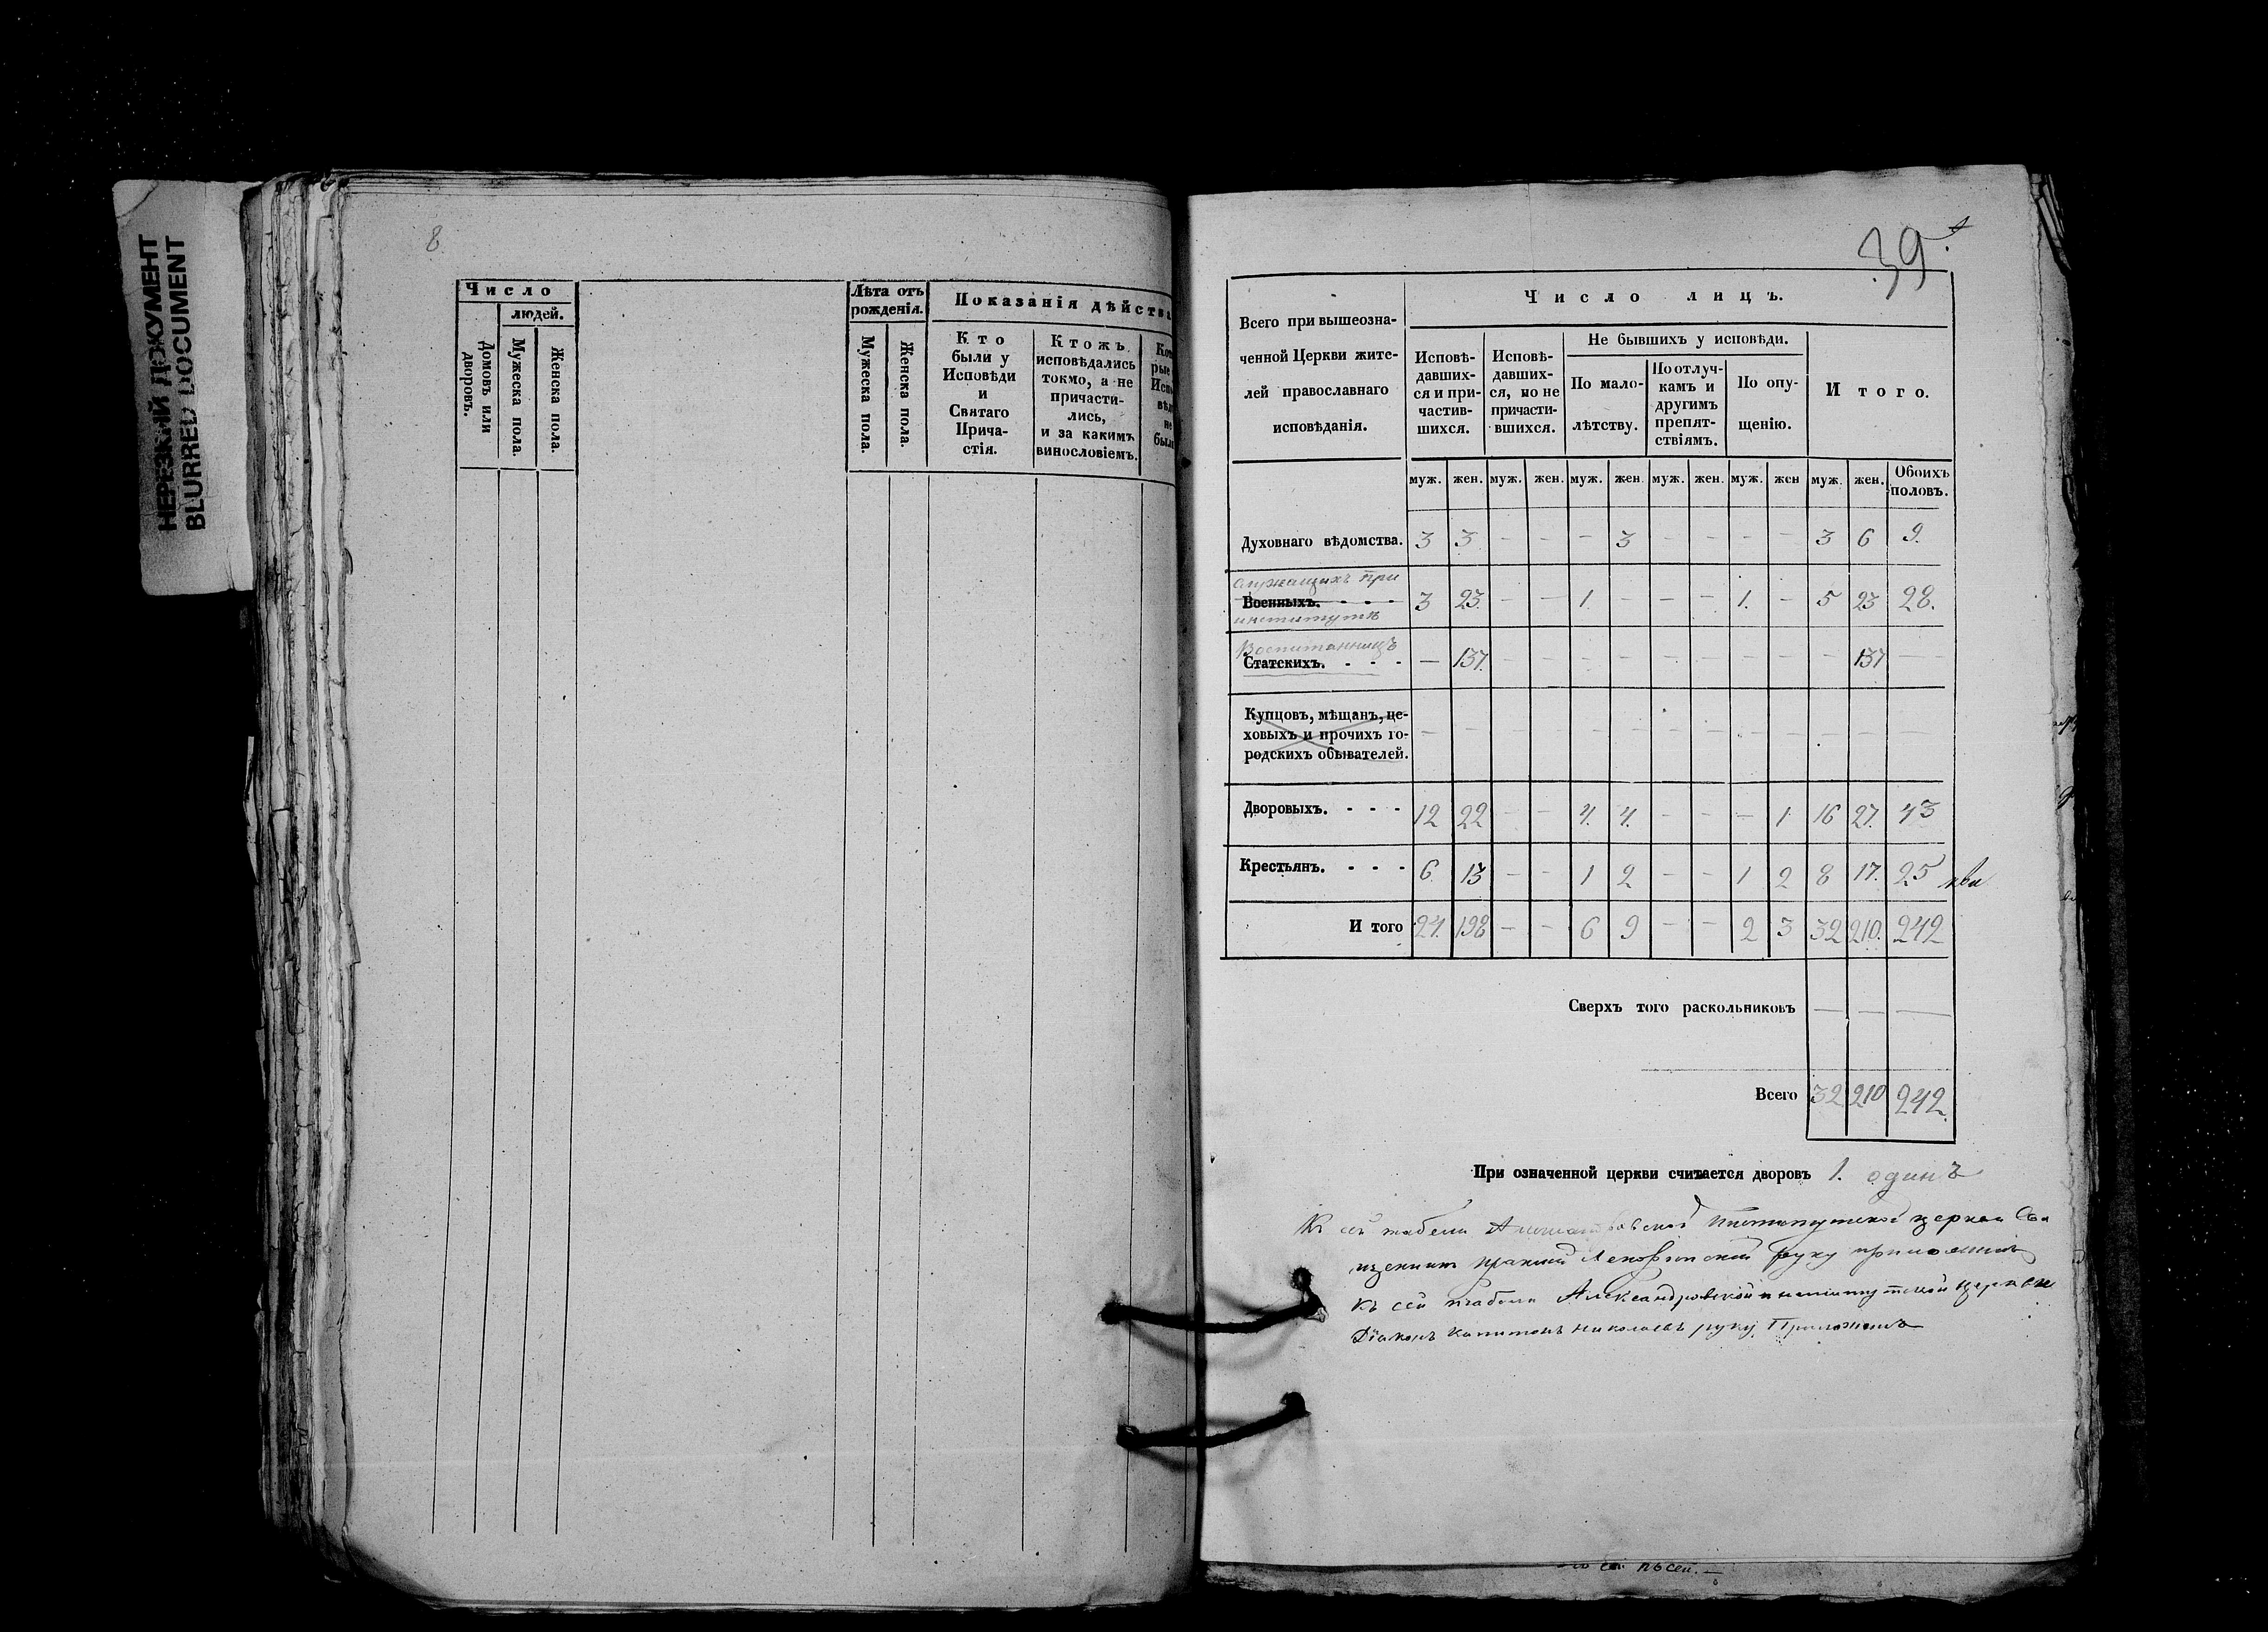 НЕРЕЗКИЙ ДОКУМЕНТ
BLURRED DOCUMENT
8
Число
людей.
Домовъ или дворовъ.
Мужеска пола.
Женска пола.
Лѣта отъ рожденія.
Мужеска пола.
Женска пола.
Показанія дѣйства
Кто были у Исповѣди и Святаго Прича- стія.
Ктожъ исповѣдались токмо, а не причасти- лись, и за какимъ винословіемъ.
39
Всего при вышеозна-
ченной Церкви жите-
лей православнаго
исповѣданія.
Число лицъ.
Исповѣ- давших- ся и при- частив- шихся.
Исповѣ- давших- ся, но не причасти- вшихся.
Не бывшихъ у исповѣди.
По мало- лѣтству.
По отлуч- камъ и другимъ препят- ствіямъ.
По опу- щенію.
Итого.
муж. жен. муж. жен. муж. жен. муж. жен. муж. жен муж. жен. Обоихъ половъ.
Духовнаго вѣдомства. 3 3 - - - 3 - - - - 3 6 9.
служащихъ при
Военныхъ. 3 23. - - 1. - - - 1. - 5 23 28.
институтѣ
Воспитанницъ
Статскихъ. - 137. - - - - - - - - - 137 -
Купцовъ, мѣщанъ, це-
ховыхъ и прочихъ го-
родскихъ обывателей. - - - - - - - - - - - - -
Дворовыхъ. 12 22 - - 4. 4. - - - 1 16 27. 43
Крестьянъ. 6 13 - - 1 2 - - 1 2 8 17. 25
И того 24. 198 - - 6 9 - - 2 3 32 210. 242
Сверхъ того раскольниковъ - - -
Всего 32 210 242.
При означенной церкви считается дворовъ 1. одинъ
Къ сей табели институтской церкви Свя
щенникъ руку приложилъ
Къ сей табели Александровской институтской церкви
Діаконъ Капитонъ Николаевъ руку Приложилъ